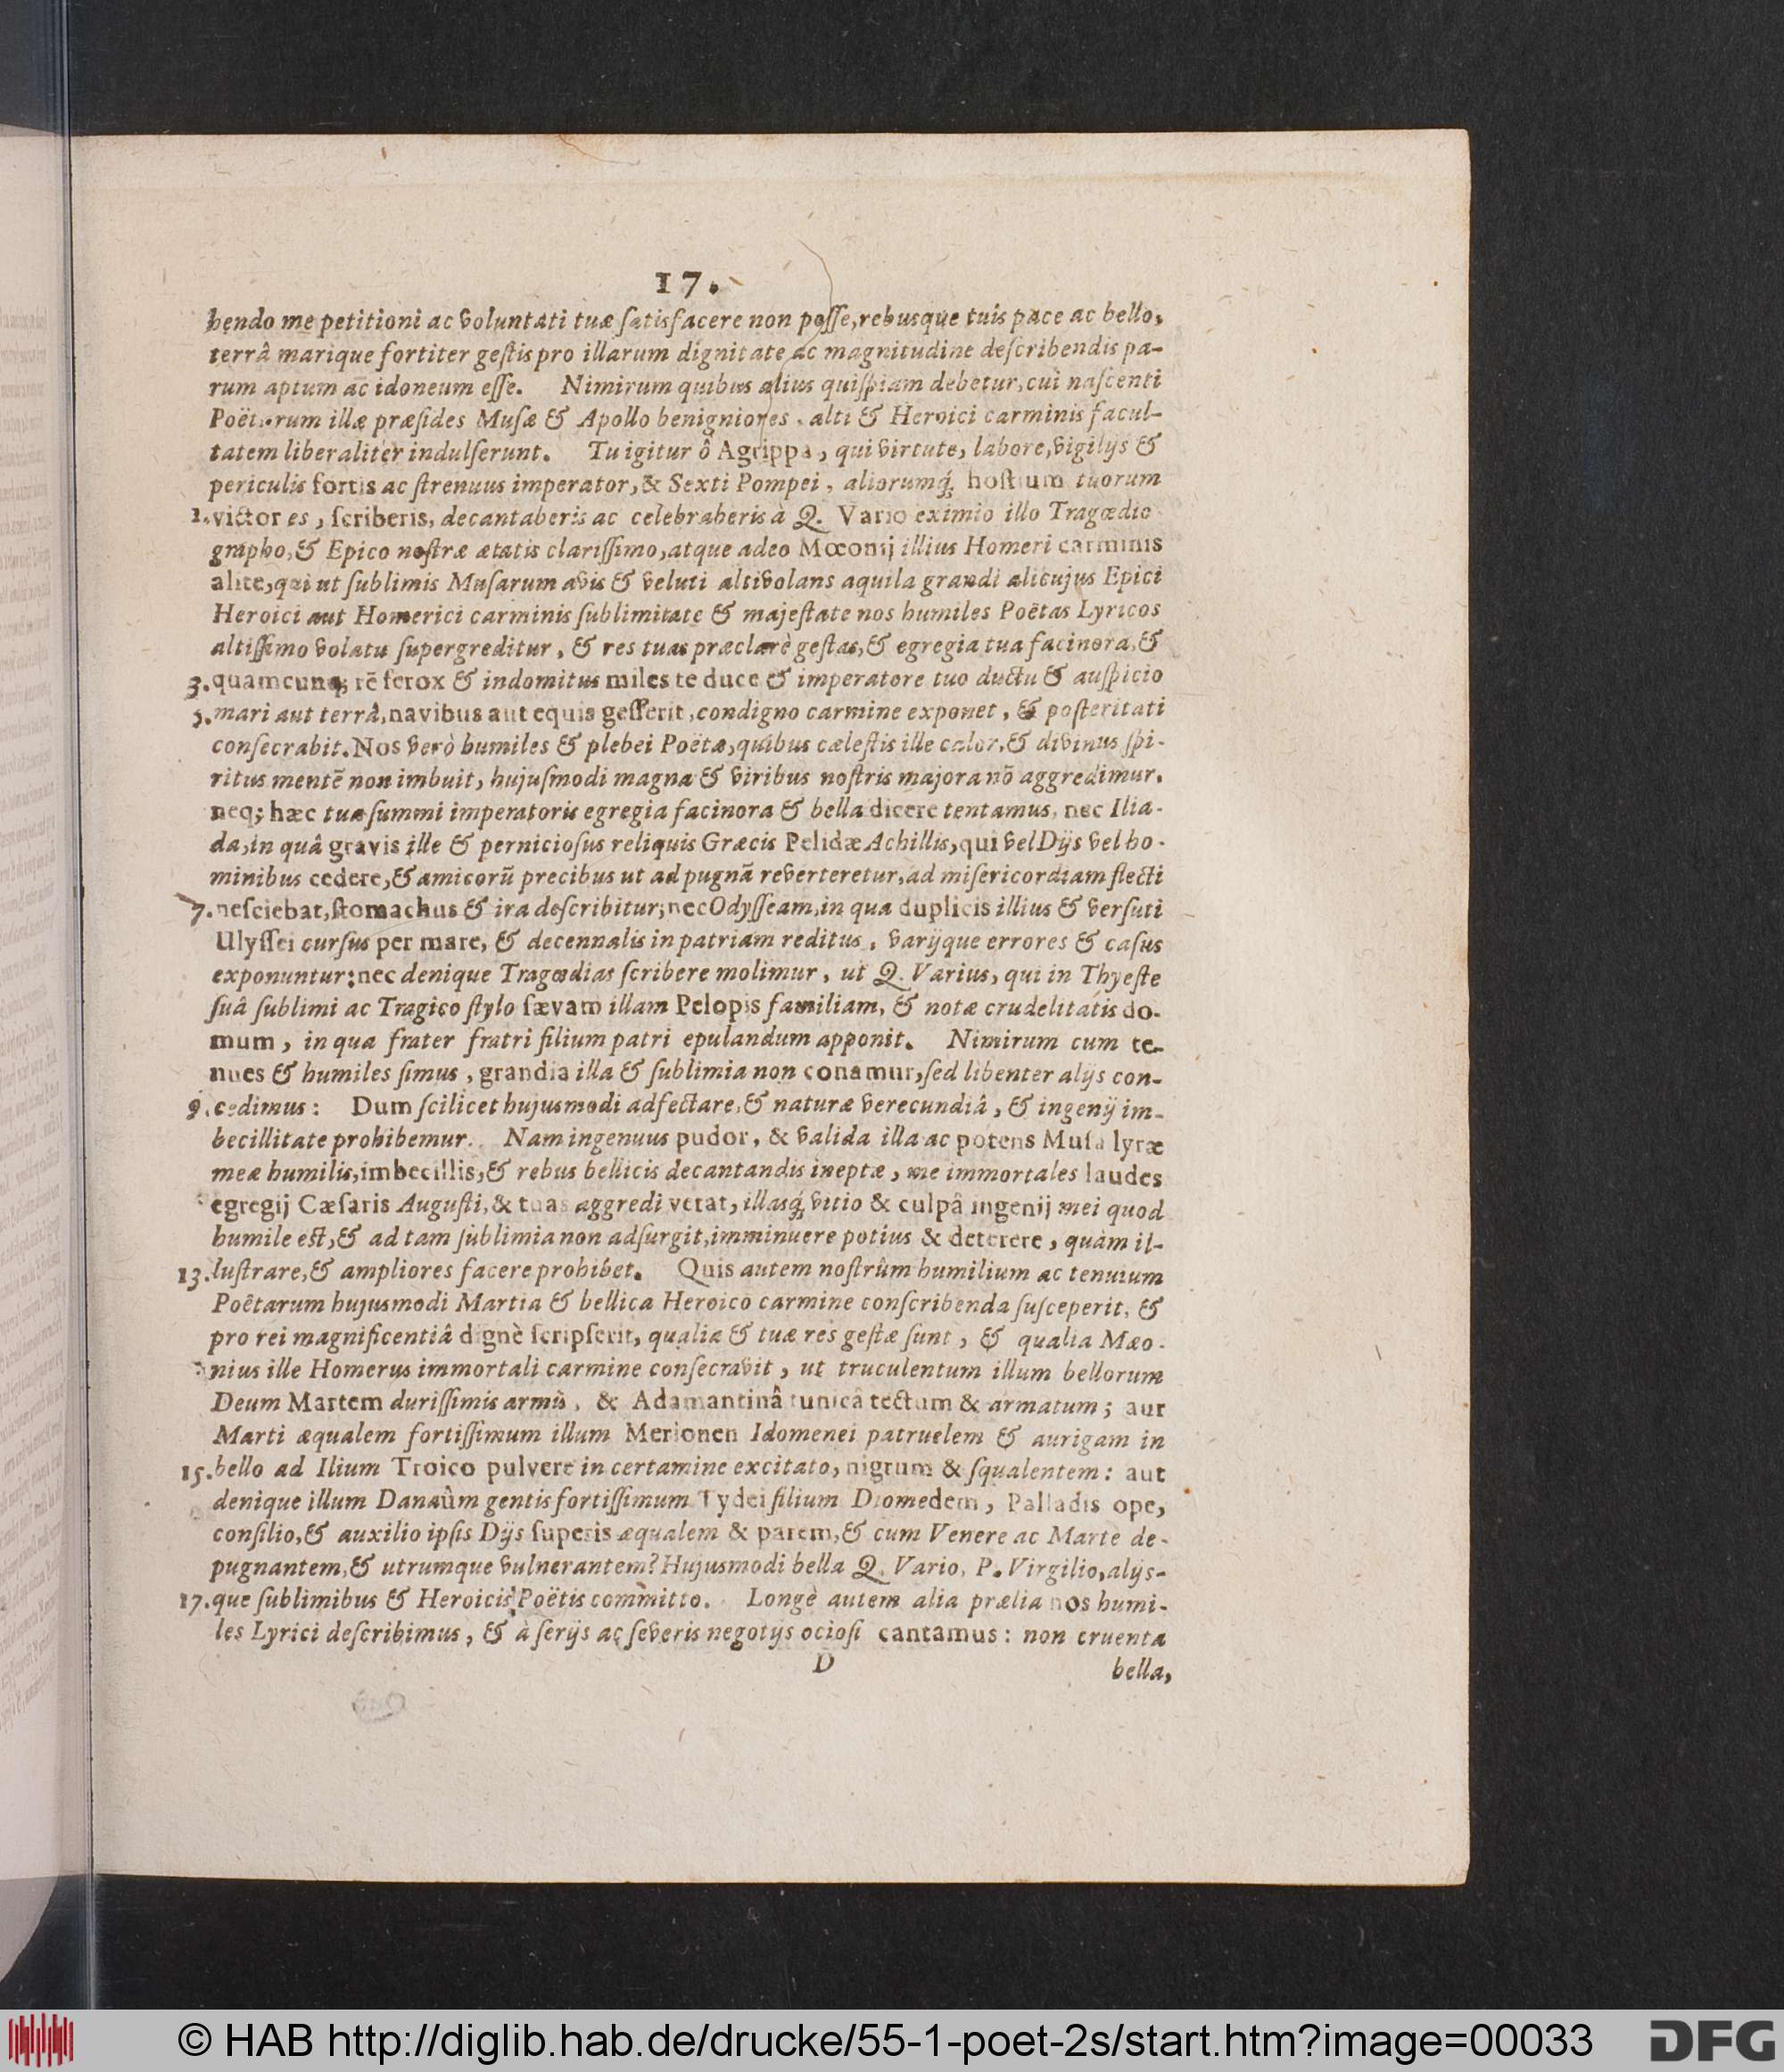 17.
bendo me petitioni ac voluntati tuæ ſatisfacere non poſſe, rebusque tuis pace ac bello,
terrâ marique fortiter geſtis pro illarum dignitate ac magnitudine deſcribendis pa-
rum aptum ac idoneum eſſe. Nimirum quibus alius quiſpiam debetur, cui naſcenti
Poëtarum illæ præſides Muſæ & Apollo benigniores, alti & Heroici carminis facul-
tatem liberaliter indulſerunt. Tu igitur ô Agrippa, qui virtute, labore, vigilijs &
periculis fortis ac ſtrenuus imperator, & Sexti Pompei, aliorumq́; hoſtium tuorum
1. victor es, ſcriberis, decantaberis ac celebraberis à Q. Vario eximio illo Tragœdio
grapho, & Epico noſtræ ætatis clariſſimo, atque adeo Mœonij illius Homeri carminis
alite, qui ut ſublimis Muſarum avis & veluti altivolans aquila grandi alicujus Epici
Heroici aut Homerici carminis ſublimitate & majeſtate nos humiles Poëtas Lyricos
altiſſimo volatu ſupergreditur, & res tuas præclarè geſtas, & egregia tua facinora, &
3. quamcunq; rē ferox & indomitus miles te duce & imperatore tuo ductu & auſpicio
5. mari aut terrâ, navibus aut equis geſſerit, condigno carmine exponet, & poſteritati
conſecrabit. Nos verò humiles & plebei Poëtæ, quibus cæleſtis ille calor, & divinus ſpi-
ritus mentē non imbuit, hujuſmodi magna & viribus noſtris majora nō aggredimur.
neq; hæc tuæ ſummi imperatoris egregia facinora & bella dicere tentamus, nec Ilia-
da, in quâ gravis ille & pernicioſus reliquis Græcis Pelidæ Achillis, qui vel Dijs vel ho-
minibus cedere, & amicorū precibus ut ad pugnā reverteretur, ad miſericordiam flecti
7. neſciebat, ſtomachus & ira deſcribitur; nec Odyſſeam, in qua duplicis illius & verſuti
Ulyſſei curſus per mare, & decennalis in patriam reditus, varijque errores & caſus
exponuntur: nec denique Tragœdias ſcribere molimur, ut Q. Varius, qui in Thyeſte
ſuâ ſublimi ac Tragico ſtylo ſævam illam Pelopis familiam, & notæ crudelitatis do-
mum, in qua frater fratri filium patri epulandum apponit. Nimirum cum te-
nues & humiles ſimus, grandia illa & ſublimia non conamur, ſed libenter alijs con-
9. cedimus: Dum ſcilicet hujusmodi adfectare, & naturæ verecundiâ, & ingenij im-
becillitate prohibemur. Nam ingenuus pudor, & valida illa ac potens Muſa lyræ
meæ humilis, imbecillis, & rebus bellicis decantandis ineptæ, me immortales laudes
egregij Cæſaris Auguſti, & tuas aggredi vetat, illasq́; vitio & culpâ ingenij mei quod
humile eſt, & ad tam ſublimia non adſurgit, imminuere potius & deterere, quàm il-
13. luſtrare, & ampliores facere prohibet. Quis autem noſtrûm humilium ac tenuium
Poëtarum hujusmodi Martia & bellica Heroico carmine conſcribenda ſuſceperit, &
pro rei magnificentiâ dignè ſcripſerit, qualia & tuæ res geſtæ ſunt, & qualia Mæo-
nius ille Homerus immortali carmine conſecravit, ut truculentum illum bellorum
Deum Martem duriſſimis armis, & Adamantinâ tunicâ tectum & armatum; aut
Marti æqualem fortiſſimum illum Merionen Idomenei patruelem & aurigam in
15. bello ad Ilium Troico pulvere in certamine excitato, nigrum & ſqualentem: aut
denique illum Danaûm gentis fortiſſimum Tydei filium Diomedem, Palladis ope,
conſilio, & auxilio ipſis Dijs ſuperis æqualem & parem, & cum Venere ac Marte de-
pugnantem, & utrumque vulnerantem? Hujusmodi bella Q. Vario, P. Virgilio, alijs-
17. que ſublimibus & Heroicis Poëtis committo. Longè autem alia prælia nos humi-
les Lyrici deſcribimus, & à ſerijs ac ſeveris negotijs ocioſi cantamus: non cruenta
D bella,
© HAB http://diglib.hab.de/drucke/55-1-poet-2s/start.htm?image=00033
DFG